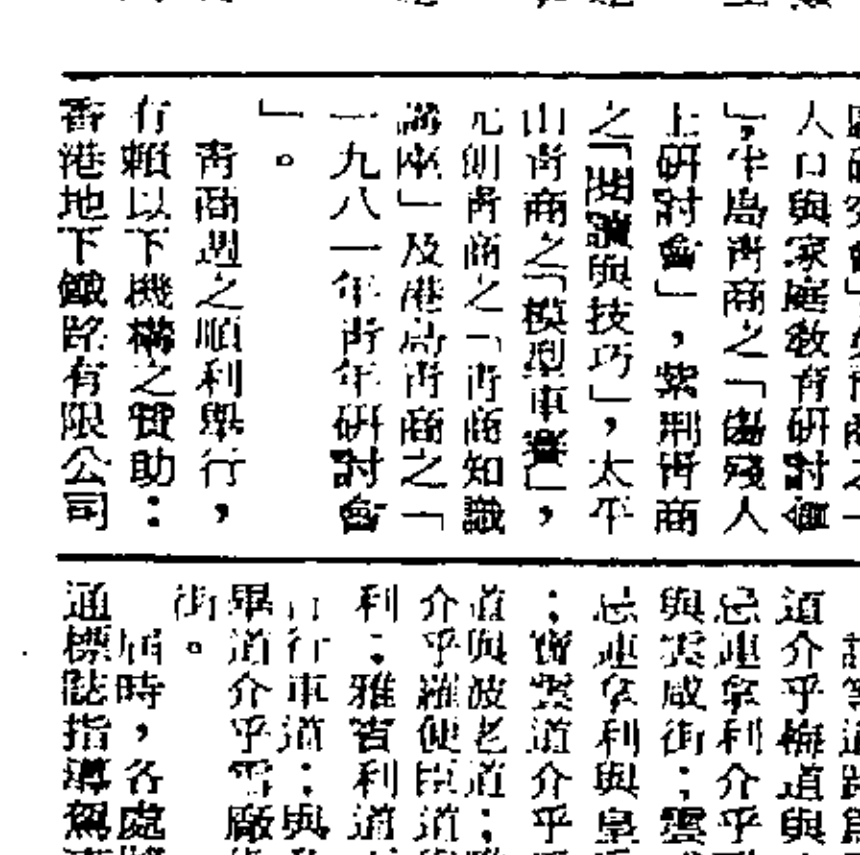 人口與家庭敎育研討會
」，半島靑商之「傷殘人
士研討會」，紫荊靑商
之「閱讀與技巧」，太平
山靑商之「模型車賽」，
元朗靑商之「靑商知識
講座」及港島靑商之「
一九八一年靑年研討會
」。
靑商週之順利舉行，
有賴以下機構之贊助：
香港地下鐵路有限公司
道介乎梅道與
忌連拿利介乎
與雲咸街；雲
忌連拿利與皇
；寶雲道介乎
道與波老道；
介乎羅便臣道
利；雅賓利道
行車道：與
畢道介乎雪廠
街。
屆時，各處
通標誌指導駕